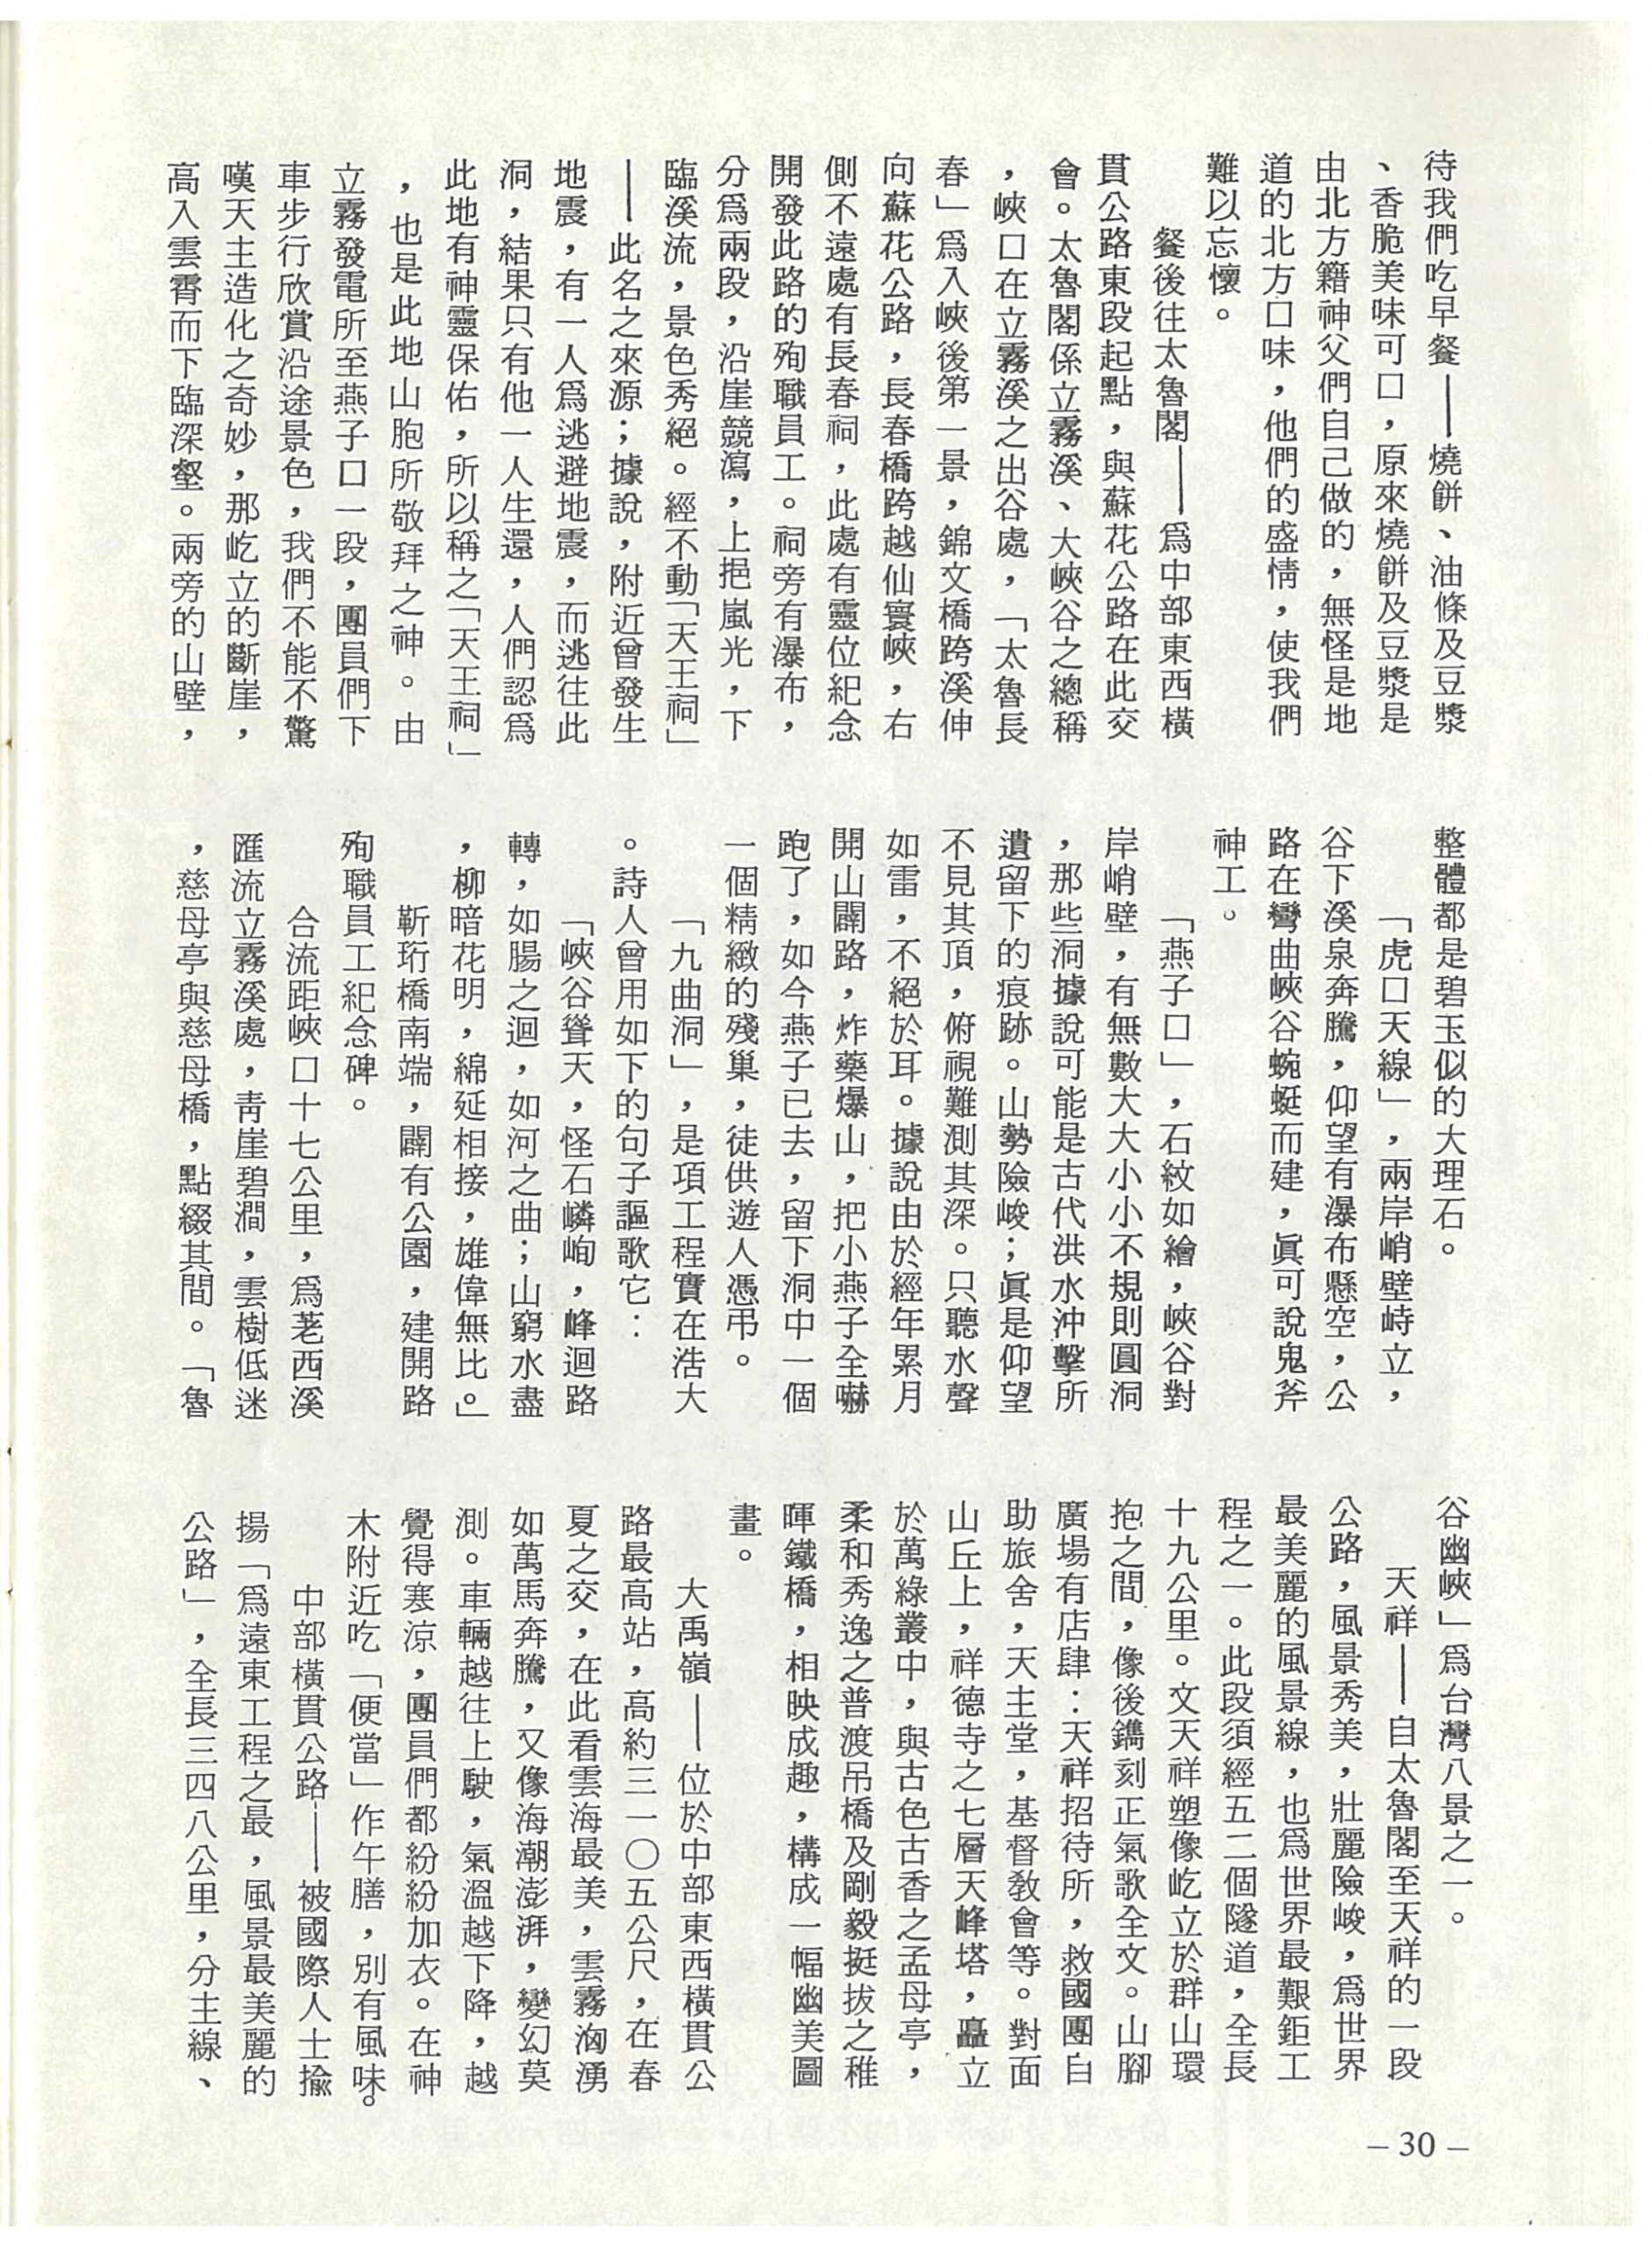 待我們吃早餐——燒餅、油條及豆漿
、香脆美味可口，原來燒餅及豆漿是
由北方籍神父們自己做的，無怪是地
道的北方口味，他們的盛情，使我們
難以忘懷。
餐後往太魯閣——爲中部東西橫
貫公路東段起點，與蘇花公路在此交
會。太魯閣係立霧溪、大峽谷之總稱
，峽口在立霧溪之出谷處，「太魯長
春」爲入峽後第一景，錦文橋跨溪伸
向蘇花公路，長春橋跨越仙寰峽，右
側不遠處有長春祠，此處有靈位紀念
開發此路的殉職員工。祠旁有瀑布，
分爲兩段，沿崖競瀉，上挹嵐光，下
臨溪流，景色秀絕。經不動「天王祠」
——此名之來源；據說，附近曾發生
地震，有一人爲逃避地震，而逃往此
洞，結果只有他一人生還，人們認爲
此地有神靈保佑，所以稱之「天王祠」
，也是此地山胞所敬拜之神。由
立霧發電所至燕子口一段，團員們下
車步行欣賞沿途景色，我們不能不驚
嘆天主造化之奇妙，那屹立的斷崖，
高入雲霄而下臨深壑。兩旁的山壁，
整體都是碧玉似的大理石。
「虎口天線」，兩岸峭壁峙立，
谷下溪泉奔騰，仰望有瀑布懸空，公
路在彎曲峽谷蜿蜒而建，眞可說鬼斧
神工。
「燕子口」，石紋如繪，峽谷對
岸峭壁，有無數大大小小不規則圓洞
，那些洞據說可能是古代洪水沖擊所
遺留下的痕跡。山勢險峻；眞是仰望
不見其頂，俯視難測其深。只聽水聲
如雷，不絕於耳。據說由於經年累月
開山闢路，炸藥爆山，把小燕子全嚇
跑了，如今燕子已去，留下洞中一個
一個精緻的殘巢，徒供遊人憑吊。
「九曲洞」，是項工程實在浩大
。詩人曾用如下的句子謳歌它：
「峽谷聳天，怪石嶙峋，峰迴路
轉，如腸之迴，如河之曲；山窮水盡
，柳暗花明，綿延相接，雄偉無比。」
靳珩橋南端，闢有公園，建開路
殉職員工紀念碑。
合流距峽口十七公里，爲荖西溪
匯流立霧溪處，青崖碧澗，雲樹低迷
，慈母亭與慈母橋，點綴其間。「魯
谷幽峽」爲台灣八景之一。
天祥——自太魯閣至天祥的一段
公路，風景秀美，壯麗險峻，爲世界
最美麗的風景線，也爲世界最艱鉅工
程之一。此段須經五二個隧道，全長
十九公里。文天祥塑像屹立於群山環
抱之間，像後鐫刻正氣歌全文。山腳
廣場有店肆：天祥招待所，救國團自
助旅舍，天主堂，基督教會等。對面
山丘上，祥德寺之七層天峰塔，矗立
於萬綠叢中，與古色古香之孟母亭，
柔和秀逸之普渡吊橋及剛毅挺拔之稚
暉鐵橋，相映成趣，構成一幅幽美圖
畫。
大禹嶺——位於中部東西橫貫公
路最高站，高約三一〇五公尺，在春
夏之交，在此看雲海最美，雲霧洶湧
如萬馬奔騰，又像海潮澎湃，變幻莫
測。車輛越往上駛，氣溫越下降，越
覺得寒涼，團員們都紛紛加衣。在神
木附近吃「便當」作午膳，別有風味。
中部橫貫公路——被國際人士揄
揚「爲遠東工程之最，風景最美麗的
公路」，全長三四八公里，分主線、
– 30 –